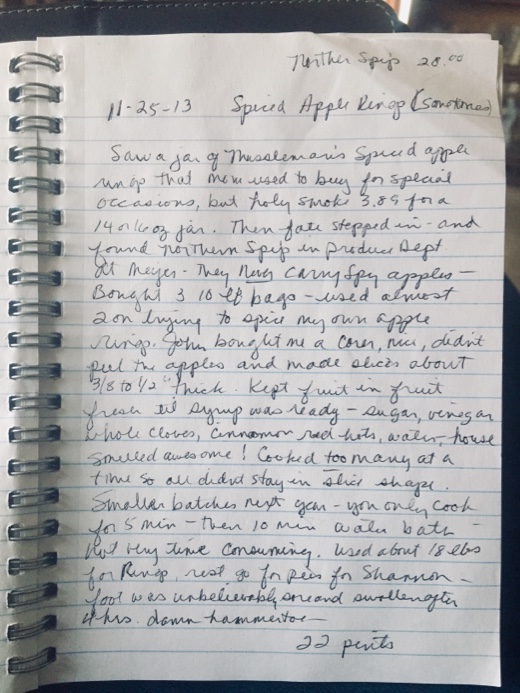 Norther Spys 28.00
11-25-13 Spiced Apple Rings (Sometimes)
Saw a jar of Mussleman's Spiced apple
rings that Mom used to buy for special
occasions, but holy smoke 3.89 for a
14 or 16 oz jar. Then fate stepped in - and
found Northern Spys in produce Dept
at Meyer - They never carry Spy apples -
Bought 3 10 lb bags - used almost
2 on trying to spice my own apple
rings. John bought me a corer, nice, didn't
peel the apples and made slices about
3/8 to 1/2" thick. Kept fruit in fruit
fresh til syrup was ready - sugar, vinegar
whole cloves, cinnamon red hots, water, house
smelled awesome! Cooked too many at a
time so all didn't stay in slice shape.
Smaller batches next year - you only cook
for 5 min - then 10 min water bath -
but very time consuming. Used about 18 lbs
for Rings, rest go for pies for Shannon -
foot was unbelievably sore and swollen after
4 hrs. damn hammertoe -
22 pints